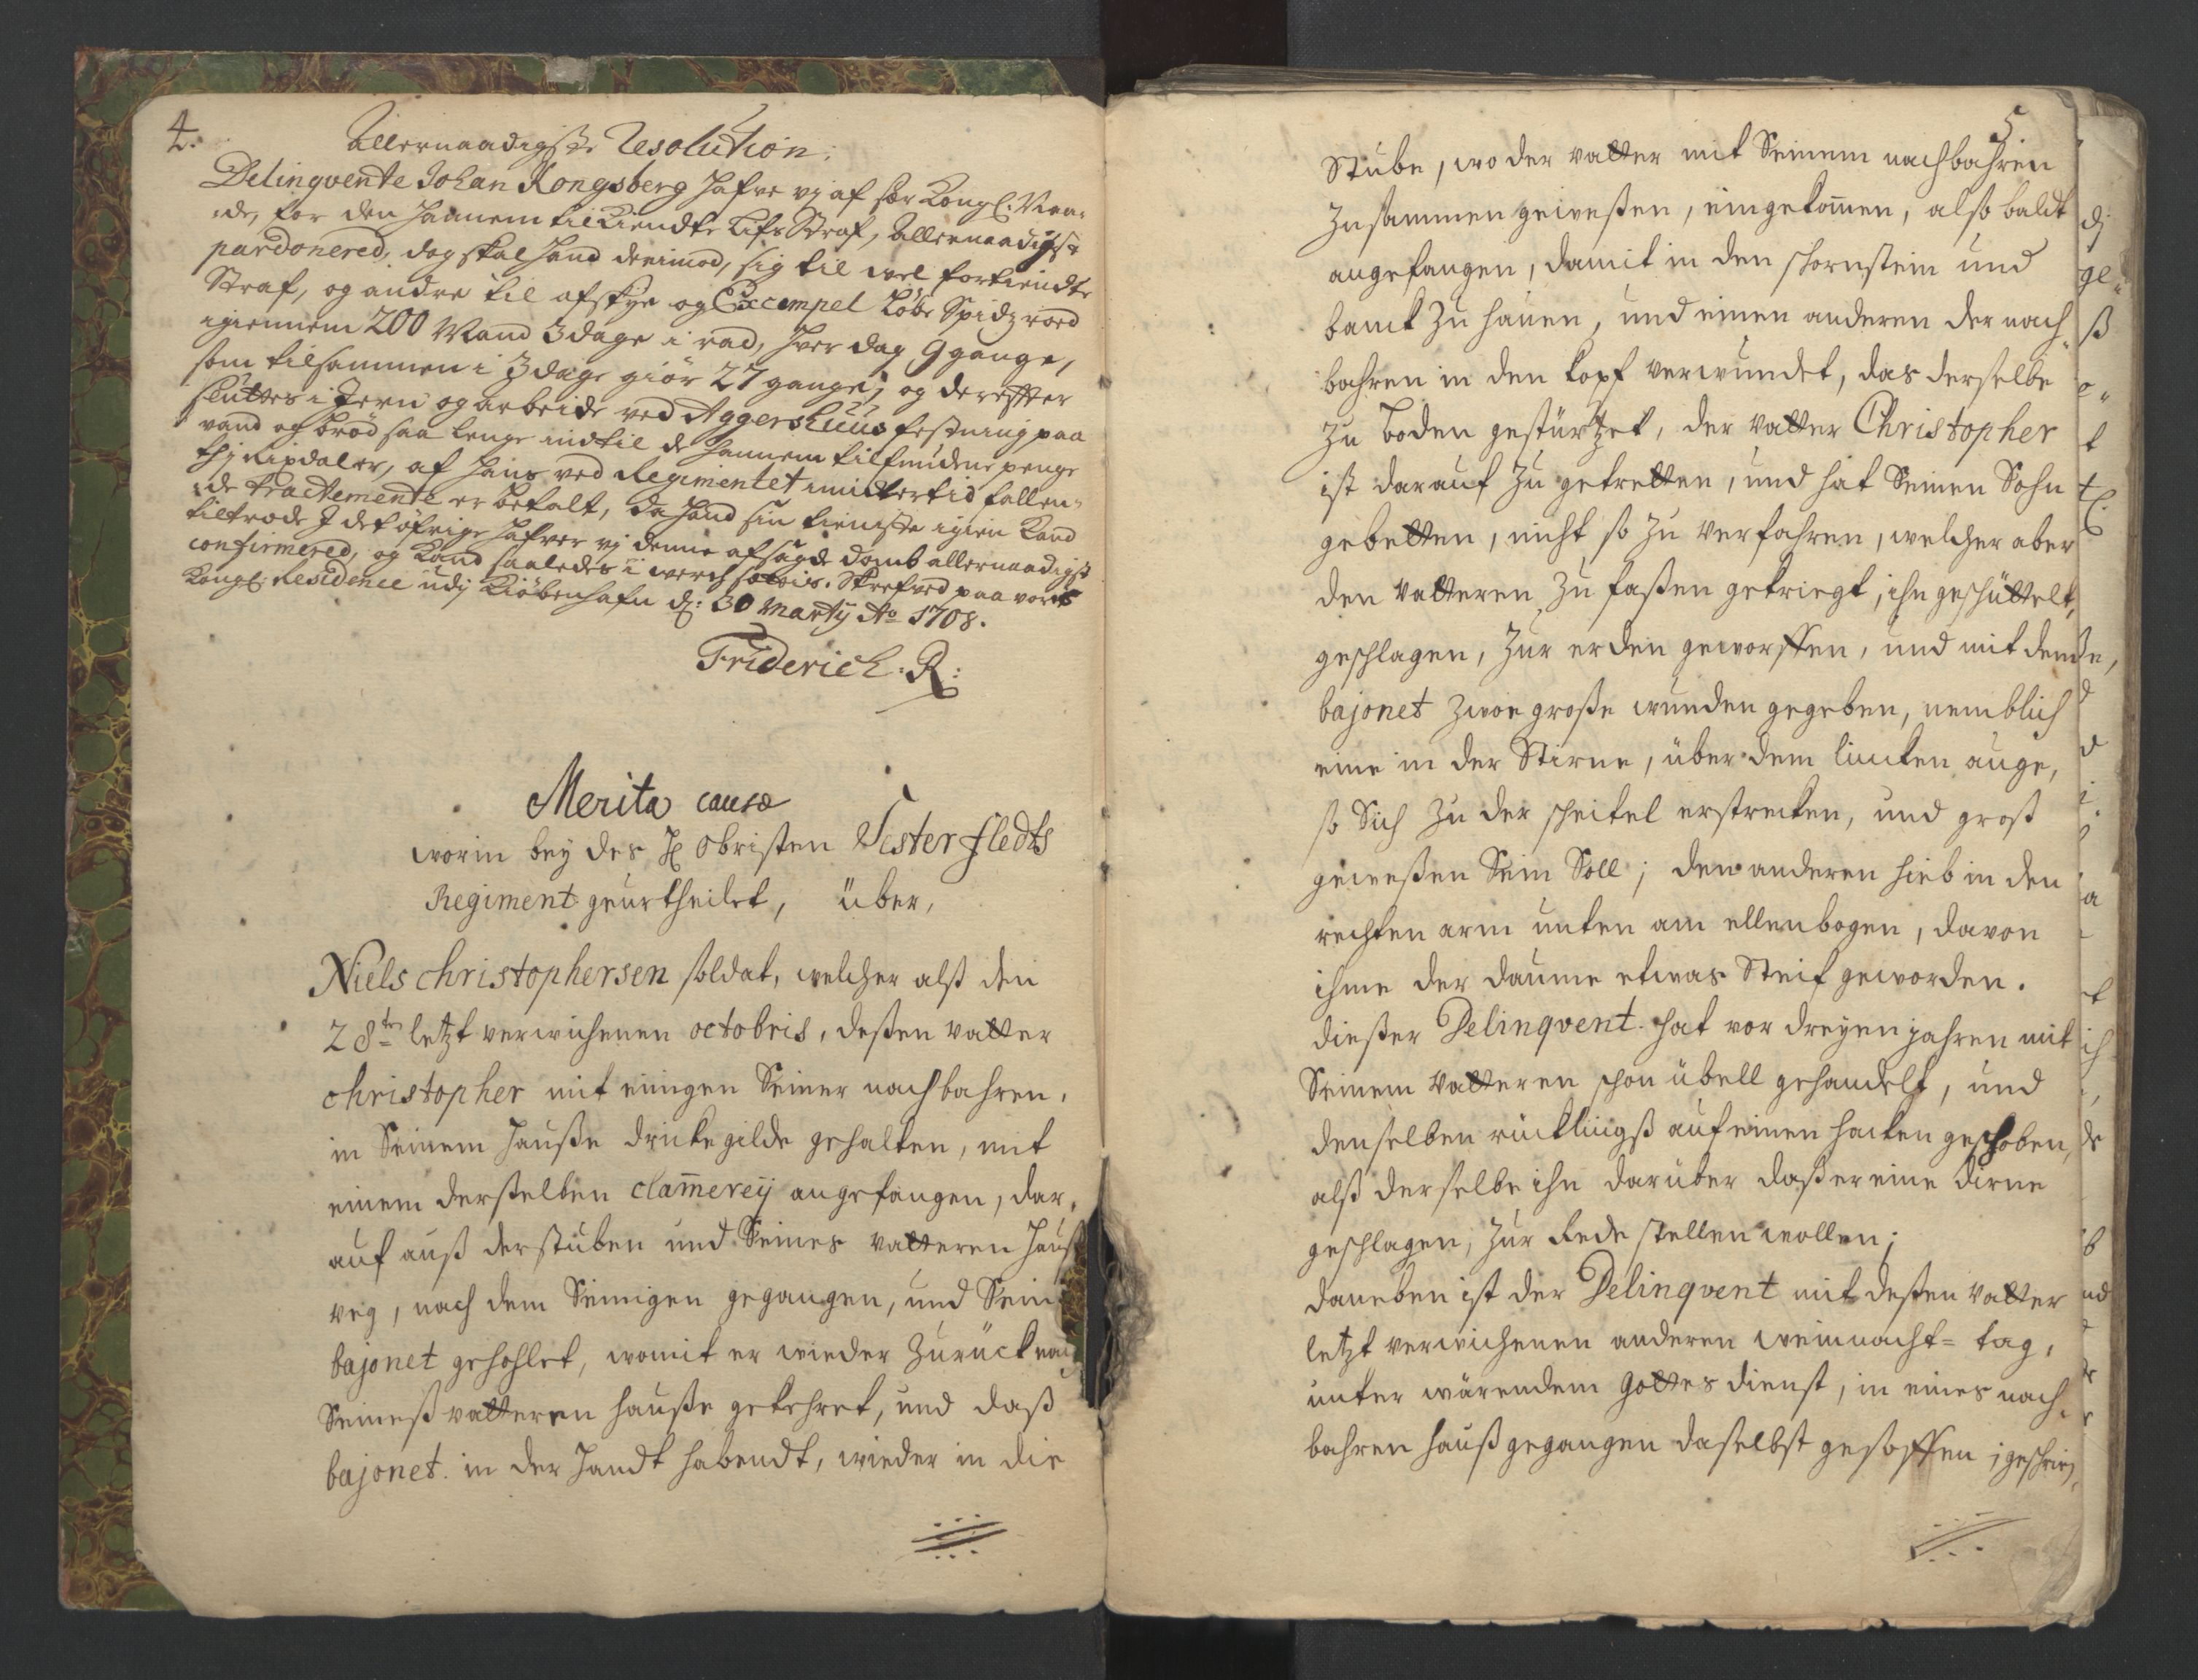 4.
Allernaadigste Resolution:
Delinqvente Johan Kongsberg hafve vj af sær Kongl: Naa-
de, for den hannem tilkiendte Lifs Straf, Allernaadigst
pardonered, dog skal hand derimod, sig til wel fortiendte
Straf, og andre til afskye og Excempel Löbe Spidzroed
igiennem 200 Mand 3 dage i rad, hver dag 9 gange,
som tilsammen i 3 dage giör 27 gange, og derefter
sluttes i Jern og arbeide ved Aggershuus festning paa
vand og bröd saa lenge indtil de hannem tilfundene penge
thj Rixdaler, af hans ved Regimentet imidlertid fallen-
de tractemente er betalt, da hand sin tieniste igien kand
tiltrode I det öfrige hafver vj denne afsagde domb allernaadigst
confirmered, og kand saaledes i werch settis. Skrefved paa vores
Kongl: Residence udj Kiöbenhafn d: 30 Martij Ao 1708.
Friderich: R:
Merita causæ
worin bey des H Obristen Testerfledts
Regiment geurtheilet, über,
Niels christophersen soldat, welcher alß den
28ten letzt verwichenen octobris, deßen vatter
christopher mit einigen Seiner nachbahren,
in Seinem Hauße drinkegilde gehalten, mit
einem derselben clam̄erey angefangen, dar-
auf auß der stuben und Seines vatteren Hauß
weg, nach dem Seinigen gegangen, und Sein
bajonet gehohlet, womit er wieder zurück nach
Seineß vatteren hauße gekehret, und daß
bajonet in der Handt habendt, wieder in die
5.
Stube, wo der vatter mit Seinem nachbahren
zusammen geweßen, eingekom̄en, also baldt
angefangen, damit in den schornstein und
banck zu hauen, und einen anderen der nach-
bahren in den kopf verwundet, das derselbe
zu boden gestürtzet, der vatter Christopher
ist darauf zu getretten, und hat Seinen Sohn
gebetten, nicht so zu verfahren, welcher aber
den vatteren zu faßen gekriegt, ihn geschüttelt,
geschlagen, zur erden geworffen, und mit dem
bajonet zwoe große wunden gegeben, nemblich
eine in der Stirne, über dem lincken auge,
so Sich zu der scheitel erstrecken, und groß
geweßen Sein Soll; den anderen hieb in den
rechten arm unten am ellenbogen, davon
ihme der daume etwas Steif geworden.
dießer Delinqvent hat vor dreyen jahren mit
Seinem vatteren schon übell gehandelt, und
denselben rücklingß auf einen hacken geschoben,
alß derselbe ihn darüber daß er eine dirne
geschlagen, zur Rede stellen wollen;
daneben ist der Delinqvent mit deßen vatter
letzt verwichenen anderen weinacht= tag,
unter wärendem gottes dienst, in eines nach-
bahren hauß gegangen daselbst gesoffen, geschrien,